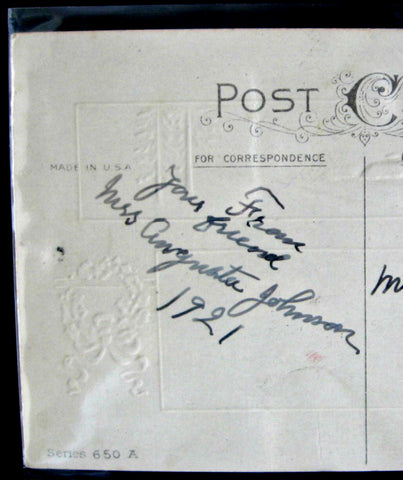 POST C
FOR CORRESPONDENCE
MADE IN U.S.A
From
your friend
Mrs Augusta Johnson
1921
Series 650 A